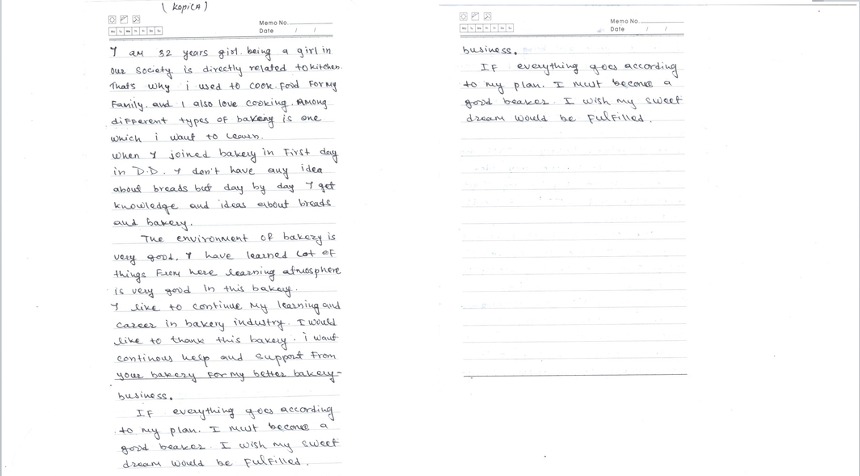 ( Kopila )
Memo No.
Date / /
I am 32 years girl. being a girl in
our society is directly related to kitchen
thats why i used to cook food for my
Family. and I also love cooking. Among
different types of bakery is one
which i want to learn.
When I joined bakery in First day
in D.D. I don't have any idea
about breads but day by day I get
knowledge and ideas about breads
and bakery.
The environment OF bakery is
very good. I have learned Lot of
things From here learning atmosphere
is very good In this bakery.
I like to continue My learning and
career in bakery industry. I would
like to thank this bakery. i want
continous help and support From
your bakery For my better bakery-
business.
IF everything goes according
to my plan. I must become a
good beaker. I wish my sweet
dream would be Fulfilled.
Memo No.
Date / /
business.
IF everything goes according
to my plan. I must become a
good beaker. I wish my sweet
dream would be Fulfilled.